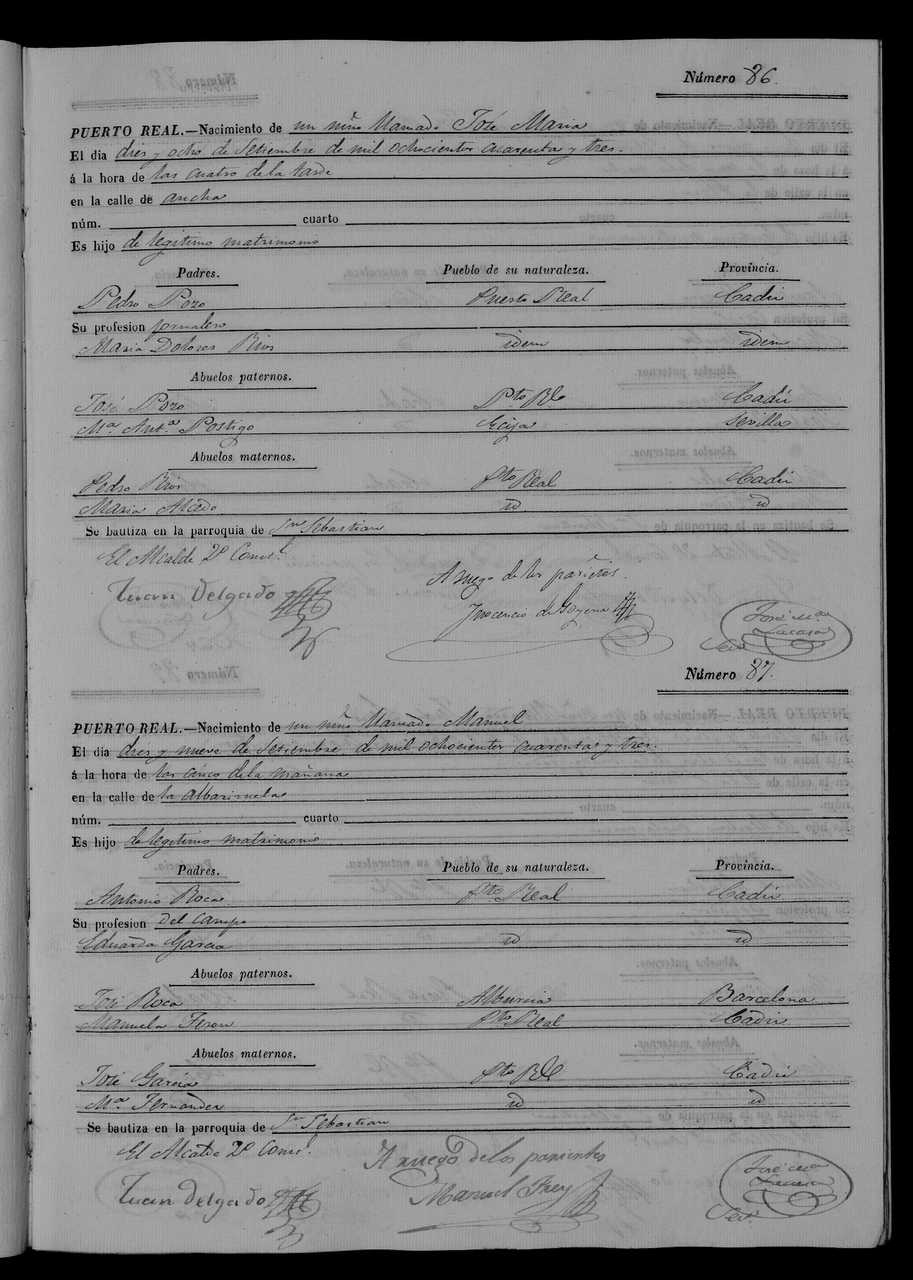 Número 86.
PUERTO REAL.—Nacimiento de un niño llamado José Maria
El dia dies y ocho de Setiembre de mil ochocientos cuarenta y tres.
á la hora de las cuatro de la tarde
en la calle de ancha
núm. cuarto
Es hijo de legitimo matrimonio
Padres. Pueblo de su naturaleza. Provincia.
Pedro Pozo Puerto Real Cadiz
Su profesion jornalero
Maria Dolores Rios idem idem
Abuelos paternos.
José Pozo Pto Rl. Cadiz
Ma. Anta. Postigo Ecija Sevilla
Abuelos maternos.
Pedro Rios Pto Real Cadiz
Maria Alcedo id id
Se bautiza en la parroquia de Sn Sebastian
El Alcalde 2º Consl.
A ruego de los parientes.
Juan Delgado Inocencio de Goyena José Ma. Lacasa
Seco.
Número 87.
PUERTO REAL.—Nacimiento de un niño llamado Manuel
El dia dies y nueve de Setiembre de mil ochocientos cuarenta y tres.
á la hora de las cinco de la mañana
en la calle de la Albarizuela
núm. cuarto
Es hijo de legitimo matrimonio
Padres. Pueblo de su naturaleza. Provincia.
Antonio Roca Pto Real Cadiz
Su profesion del campo
Eduarda Garcia id id
Abuelos paternos.
José Roca Barcelona
Manuela Pto Real Cadiz
Abuelos maternos.
José Garcia Pto Rl Cadiz
Ma. Fernandez id id
Se bautiza en la parroquia de Sn Sebastian
El Alcalde 2º Consl.
A ruego de los parientes
Juan Delgado Manuel José Ma. Lacasa
Seco.